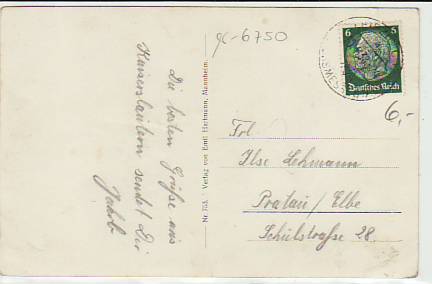 Die besten Grüße aus
Kaiserslautern sendet Dir
gc-6750
6 5
Deutsches Reich
6,-
Frl.
Ilse Lehmann
Pratau / Elbe
Schulstraße 28.
Nr. 753. Verlag von Emil Hartmann, Mannheim.